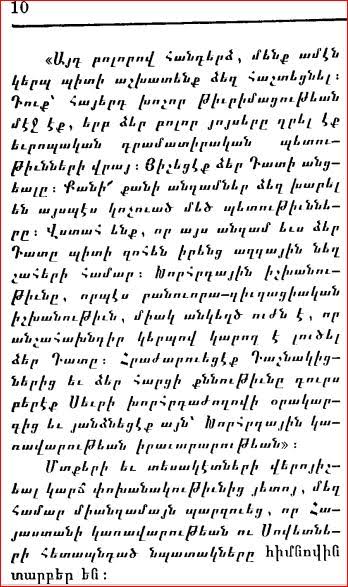 10
«Այդ բոլորով հանդերձ, մենք ամէն
կերպ պիտի աշխատենք ձեզ հաշտեցնել:
Դուք՝ հայերդ խոշոր թիւրիմացութեան
մէջ էք, երբ ձեր բոլոր յոյսերը դրել էք
եւրոպական դրամատիրական պետու-
թիւնների վրայ: Յիշեցէք ձեր Դատի անց-
եալը: Քանի՜ քանի անդամներ ձեզ խաբել
են այսպէս կոչուած մեծ պետութիւննե-
րը: Վստահ ենք, որ այս անգամ եւս ձեր
Դատը պիտի զոհեն իրենց ազգային նեղ
շահերի համար: Խորհրդային իշխանու-
թիւնը, որպէս բանուորա-գիւղացիական
իշխանութիւն, միակ անկեղծ ուժն է, որ
անշահախնդիր կերպով կարող է լուծել
ձեր Դատը: Հրաժարուեցէք Դաշնակից-
ներից եւ ձեր հարցի քննութիւնը դուրս
բերէք Սեւրի խորհրդաժողովի օրակար-
գից եւ յանձնեցէք այն՝ Խորհրդային կա-
ռավարութեան իրաւարարութեան»:
Մտքերի եւ տեսակէտների վերոյիշ-
եալ կարճ փոխանակութիւնից յետոյ, մեզ
համար միանգամայն պարզուեց, որ Հա-
յաստանի կառավարութեան ու Սովետնե-
րի հետապնդած նպատակները հիմնովին
տարբեր են: